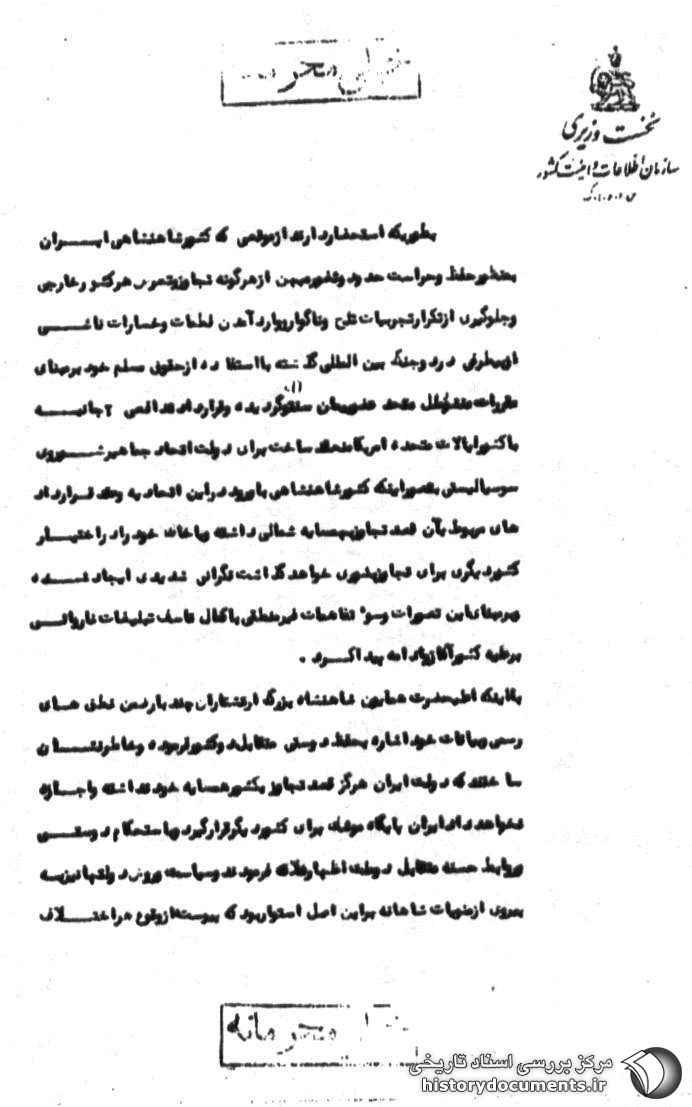 خیلی محرمانه
نخست وزیری
سازمان اطلاعات و امنیت کشور
س.ا.و.ا.ک
بطوریکه استحضار دارند از موقعی که کشور شاهنشاهی ایران
بمنظور حفظ و حراست حدود و ثغور میهن از هرگونه تجاوز و تعرض هر کشور خارجی
و جلوگیری از تکرار تجربیات تلخ و ناگوار و وارد آمدن لطمات و خسارات ناشی
از بیطرفی در دو جنگ بین المللی گذشته با استفاده از حقوق مسلم خود بر مبنای
مقررات ملل متحد عضو پیمان سنتو گردیده و قرارداد تدافعی ۲ جانبه
با کشور ایالات متحده امریکا منعقد ساخت برای دولت اتحاد جماهیر شوروی
سوسیالیستی تصور اینکه کشور شاهنشاهی با ورود در این اتحادیه و عقد قرارداد
های مربوط بآن قصد تجاوز بهمسایه شمالی داشته و یا خاک خود را در اختیار
کشور دیگری برای تجاوز بشوروی خواهد گذاشت نگرانی شدیدی ایجاد شده
و بر مبنای این تصورات و سوء تفاهمات غیر منطقی با کمال تاسف تبلیغات ناروائی
بر علیه کشور آغاز و ادامه پیدا کرد .
با اینکه اعلیحضرت همایون شاهنشاه بزرگ ارتشتاران چند بار ضمن نطق های
رسمی و بیانات خود اشاره بحفظ دوستی متقابل دو کشور فرموده و خاطر نشان
ساختند که دولت ایران هرگز قصد تجاوز بکشور همسایه خود نداشته و اجازه
نخواهد داد ایران پایگاه موشک برای کشور دیگر قرار گیرد و باستحکام دوستی
و روابط حسنه متقابل دو ملت اظهار علاقه فرمودند و سیاست و روش دولتها نیز به
پیروی از منویات شاهانه بر این اصل استوار بود که پیوسته از وقوع هر اختلاف
خیلی محرمانه
مرکز بررسی اسناد تاریخی
historydocuments.ir